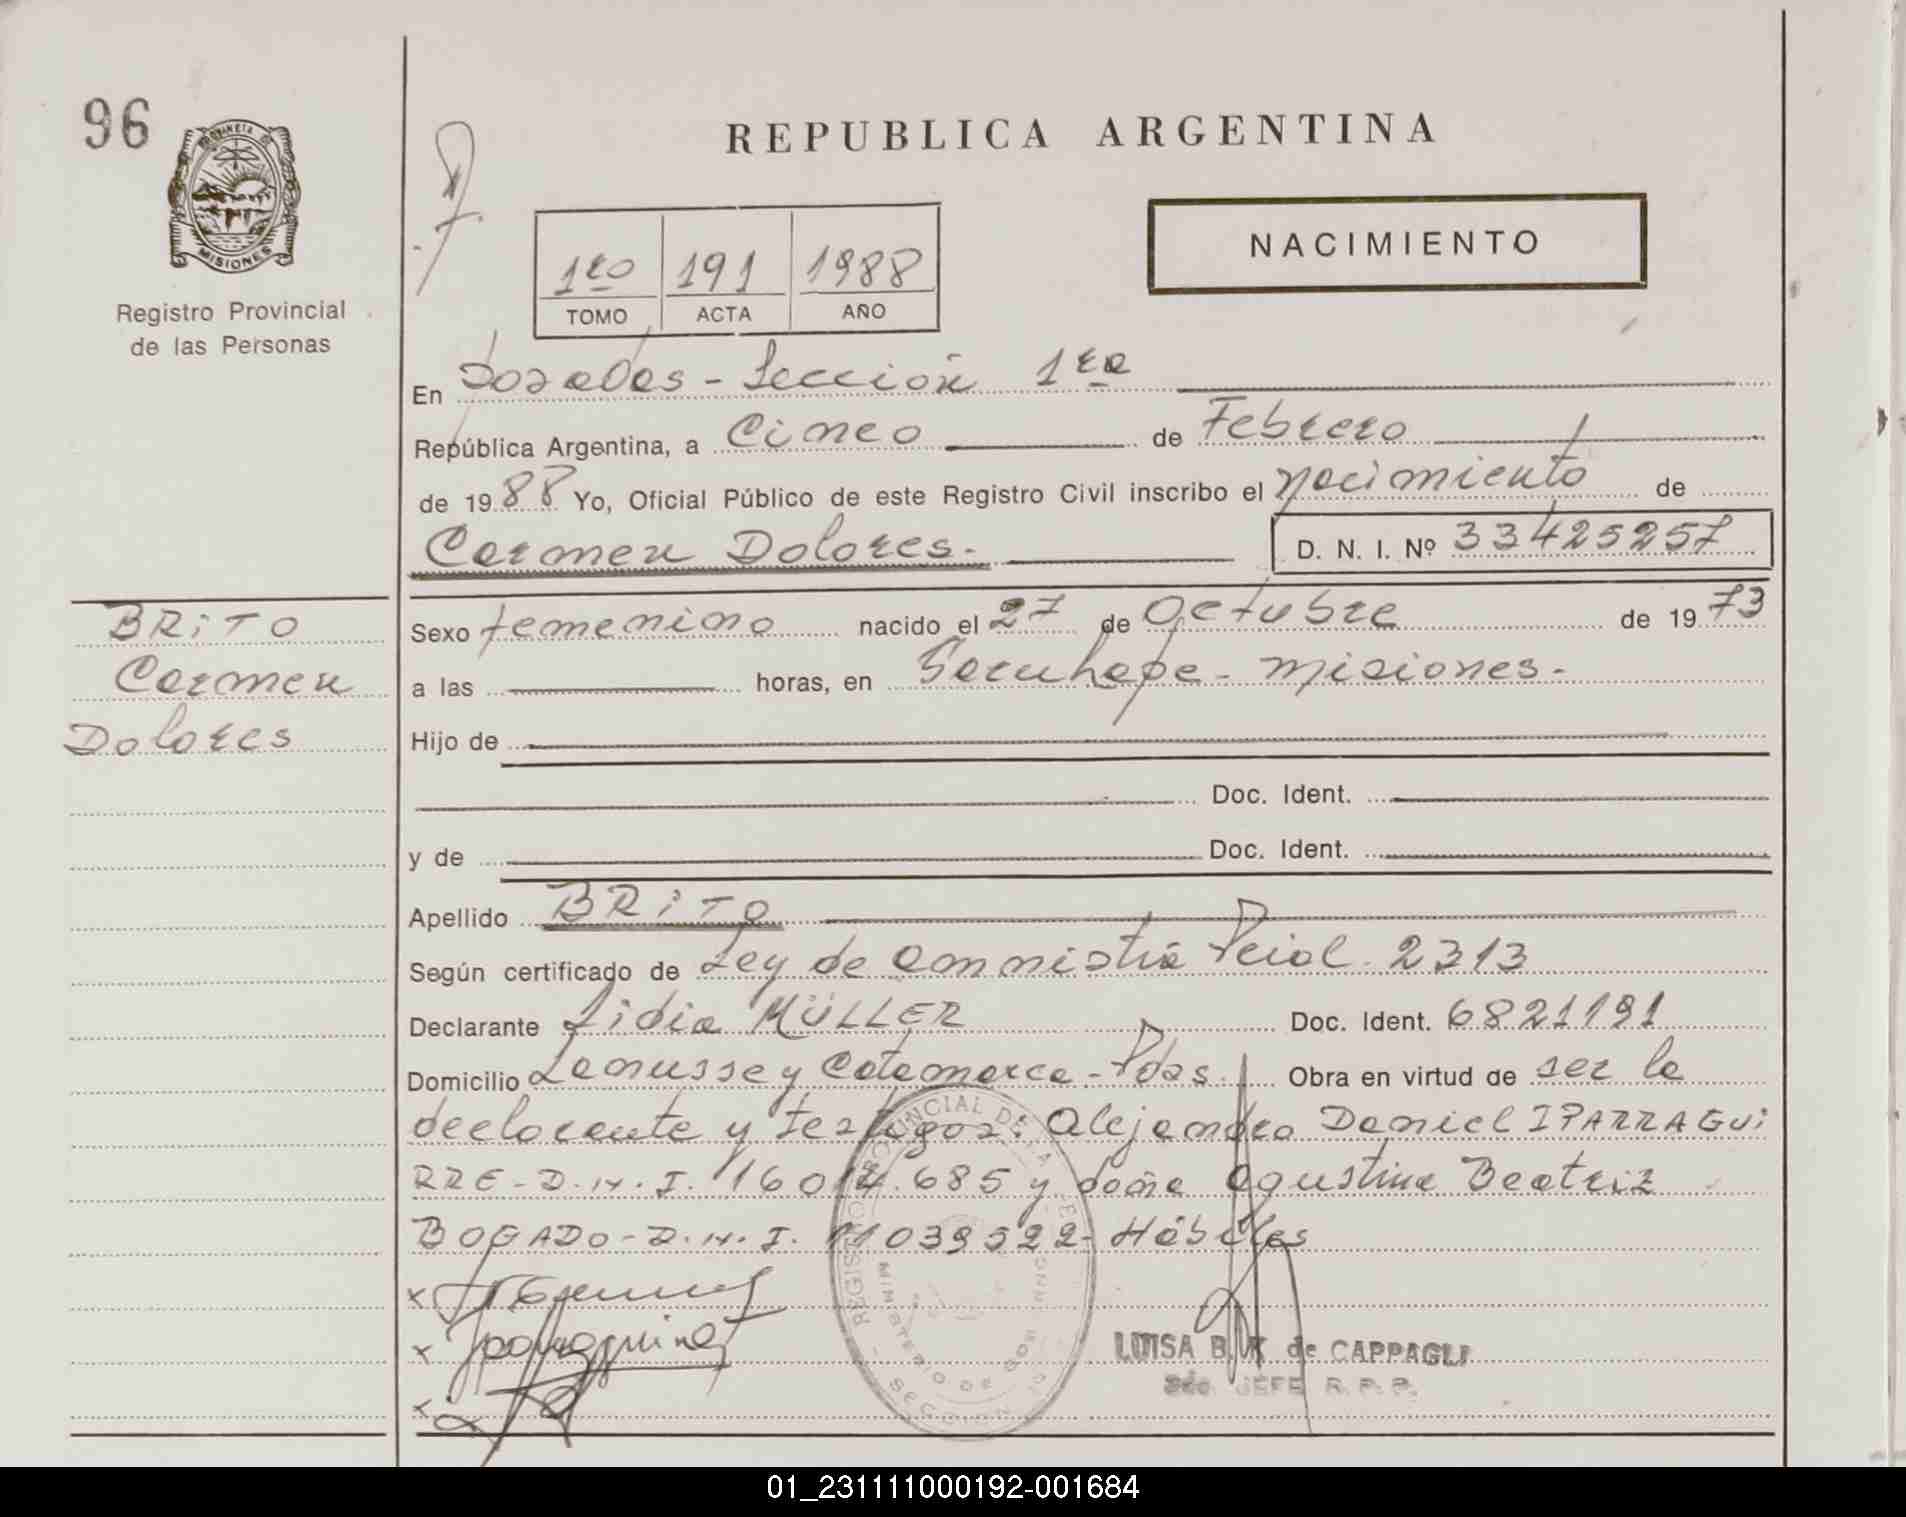 96
MISIONES
Registro Provincial
de las Personas
REPUBLICA ARGENTINA
NACIMIENTO
1ro 191 1988
TOMO ACTA AÑO
En Posadas - Sección 1ra
República Argentina, a Cinco de Febrero
de 1988 Yo, Oficial Público de este Registro Civil inscribo el nacimiento de
Carmen Dolores.-
D. N. I. Nº 33425257
BRITO
Carmen
Dolores
Sexo femenino nacido el 27 de Octubre de 1973
a las horas, en Garuhape - Misiones.-
Hijo de
Doc. Ident.
y de Doc. Ident.
Apellido BRITO
Según certificado de Ley de amnistía Pcial. 2313
Declarante Lidia MÜLLER Doc. Ident. 6821191
Domicilio Lanusse y Catamarca - Pdas. Obra en virtud de ser la
declarante y testigos: Alejandro Daniel IPARRAGUI
RRE - D.N.I. 16 .685 y doña Agustina Beatriz
BOGADO - D.N.I. 11039522 - Hábiles
LUISA B. de CAPPAGLI
2do. JEFE R. P. P.
REGISTRO PROVINCIAL DE LA
MINISTERIO DE GOB
SECCION
01_231111000192-001684